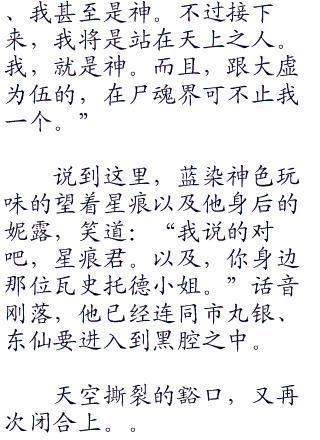 、我甚至是神。不过接下
来，我将是站在天上之人。
我，就是神。而且，跟大虚
为伍的，在尸魂界可不止我
一个。”
说到这里，蓝染神色玩
味的望着星痕以及他身后的
妮露，笑道：“我说的对
吧，星痕君。以及，你身边
那位瓦史托德小姐。”话音
刚落，他已经连同市丸银、
东仙要进入到黑腔之中。
天空撕裂的豁口，又再
次闭合上。。